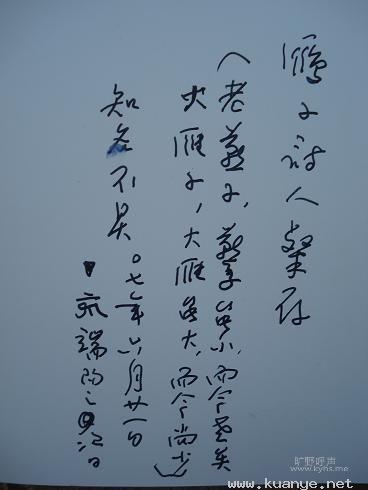 雁子诗人存
（老燕子，燕子虽小，而今老矣
大雁子，大雁虽大，而今尚少）
知名不具。〇七年六月廿一日
端阳之日
旷野呼声
www.kyhs.me
www.kuanye.net